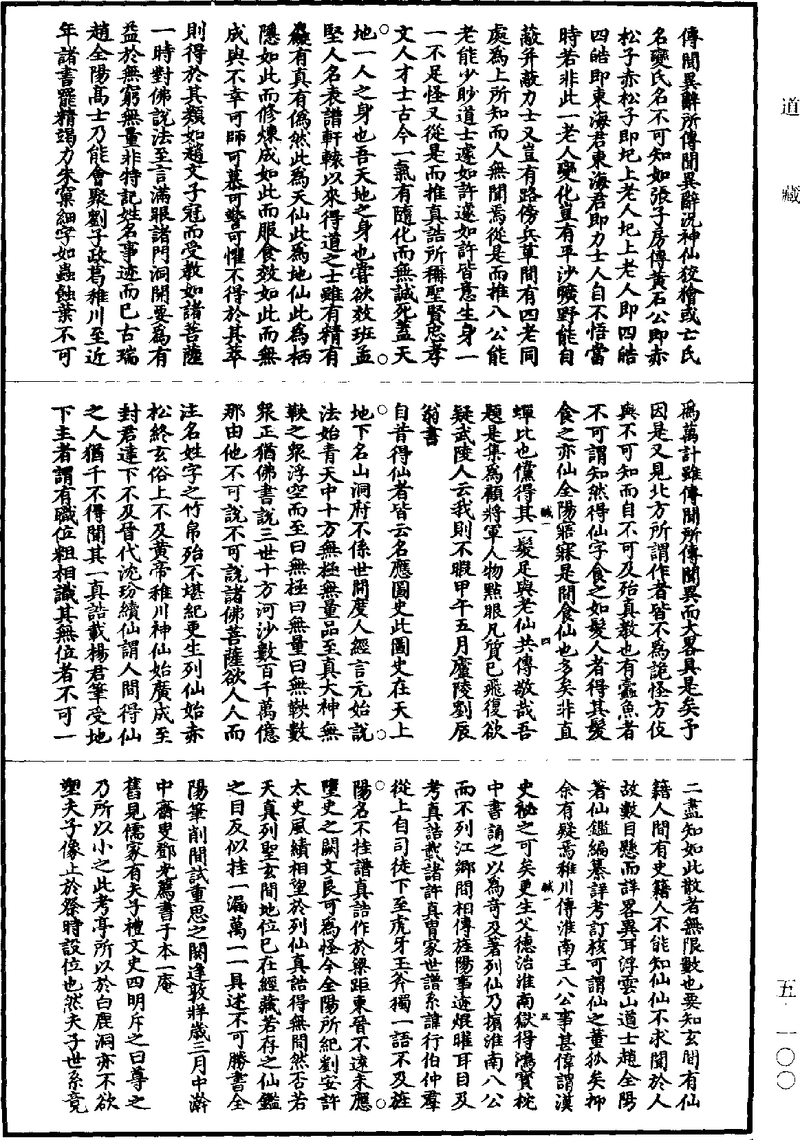 道藏
五·一〇〇
傳聞異辭所傳聞異辭況神仙狡獪或亡氏
名變氏名不可知如張子房傳黄石公即赤
松子赤松子即圯上老人圯上老人即四皓
四皓即東海君東海君即力士人自不悟當
時若非此一老人變化豈有平沙曠野能自
蔽并蔽力士又豈有路傍兵草間有四老同
處為上所知而人無聞焉從是而推八公能
老能少眇道士遽如許遽如許皆意生身一
一不足怪又從是而推真誥所稱聖賢忠孝
文人才士古今一氣有隨化而無誠死蓋天
地一人之身也吾天地之身也嘗欲效班孟
堅人名表譜軒轅以來得道之士雖有精有
麤有真有偽然此為天仙此為地仙此為栖
隱如此而修煉成如此而服食效如此而無
成與不幸可師可慕可警可懼不得於其萃
則得於其類如趙文子冠而受教如諸菩薩
一時對佛說法至言滿眼諸門洞開要為有
益於無窮無量非特記姓名事迹而已古瑞
趙全陽高士乃能會聚劉子政葛稚川至近
年諸書罷精竭力朱窠細字如蟲蝕葉不可
爲萬計雖傳聞所傳聞異而大畧具是矣予
因是又見北方所謂作者皆不為詭怪方伎
與不可知而自不可及殆真教也有蠹魚者
不可謂知然得仙字食之如髮人者得其髮
食之亦仙全陽寤寐是間食仙也多矣非直
蟬比也儻得其一髮足與老仙共傳敬哉吾
題是集為顧將軍人物點眼凡質已飛復欲
疑武陵人云我則不暇甲午五月廬陵劉辰
翁書
自昔得仙者皆云名應圖史此圖史在天上
地下名山洞府不係世間度人經言元始說
法始青天中十方無極無量品至真大神無
鞅之衆浮空而至曰無極曰無量曰無鞅數
衆正猶佛書說三世十方河沙數百千萬億
那由他不可說不可說諸佛菩薩欲人人而
注名姓字之竹帛殆不堪紀更生列仙始赤
松終玄俗上不及黄帝稚川神仙始廣成至
封君達下不及晉代沈玢續仙謂人間得仙
之人猶千不得聞其一真誥載楊君筆受地
下主者謂有職位粗相識其無位者不可一
二盡知如此散者無限數也要知玄間有仙
籍人間有史籍人不能知仙仙不求聞於人
故數目懸而詳畧異耳浮雲山道士趙全陽
著仙鑑編纂詳考訂核可謂仙之董狐矣抑
余有疑焉稚川傳淮南王八公事甚偉謂漢
史祕之可矣更生父德治淮南獄得鴻寳枕
中書誦之以為奇及著列仙乃擯淮南八公
而不列江鄉間相傳旌陽事迹焜曜耳目及
考真誥載諸許真胄家世譜系諱行伯仲羣
從上自司徒下至虎牙玉斧獨一語不及旌
陽名不挂譜真誥作於梁距東晉不遠未應
墮史之闕文良可為怪今全陽所紀劉安許
太史風績相望於列仙真誥得無間然否若
天真列聖玄間地位已在經藏若存之仙鑑
之目反似挂一漏萬一一具述不可勝書全
陽筆削間試重思之閼逢敦牂歲三月中澣
中齋叟鄧光薦書于本一庵
舊見儒家有夫子禮文史四明斥之曰尊之
乃所以小之此考亭所以於白鹿洞亦不欲
塑夫子像止於祭時設位也然夫子世系竟
賦一
四
賦一
五